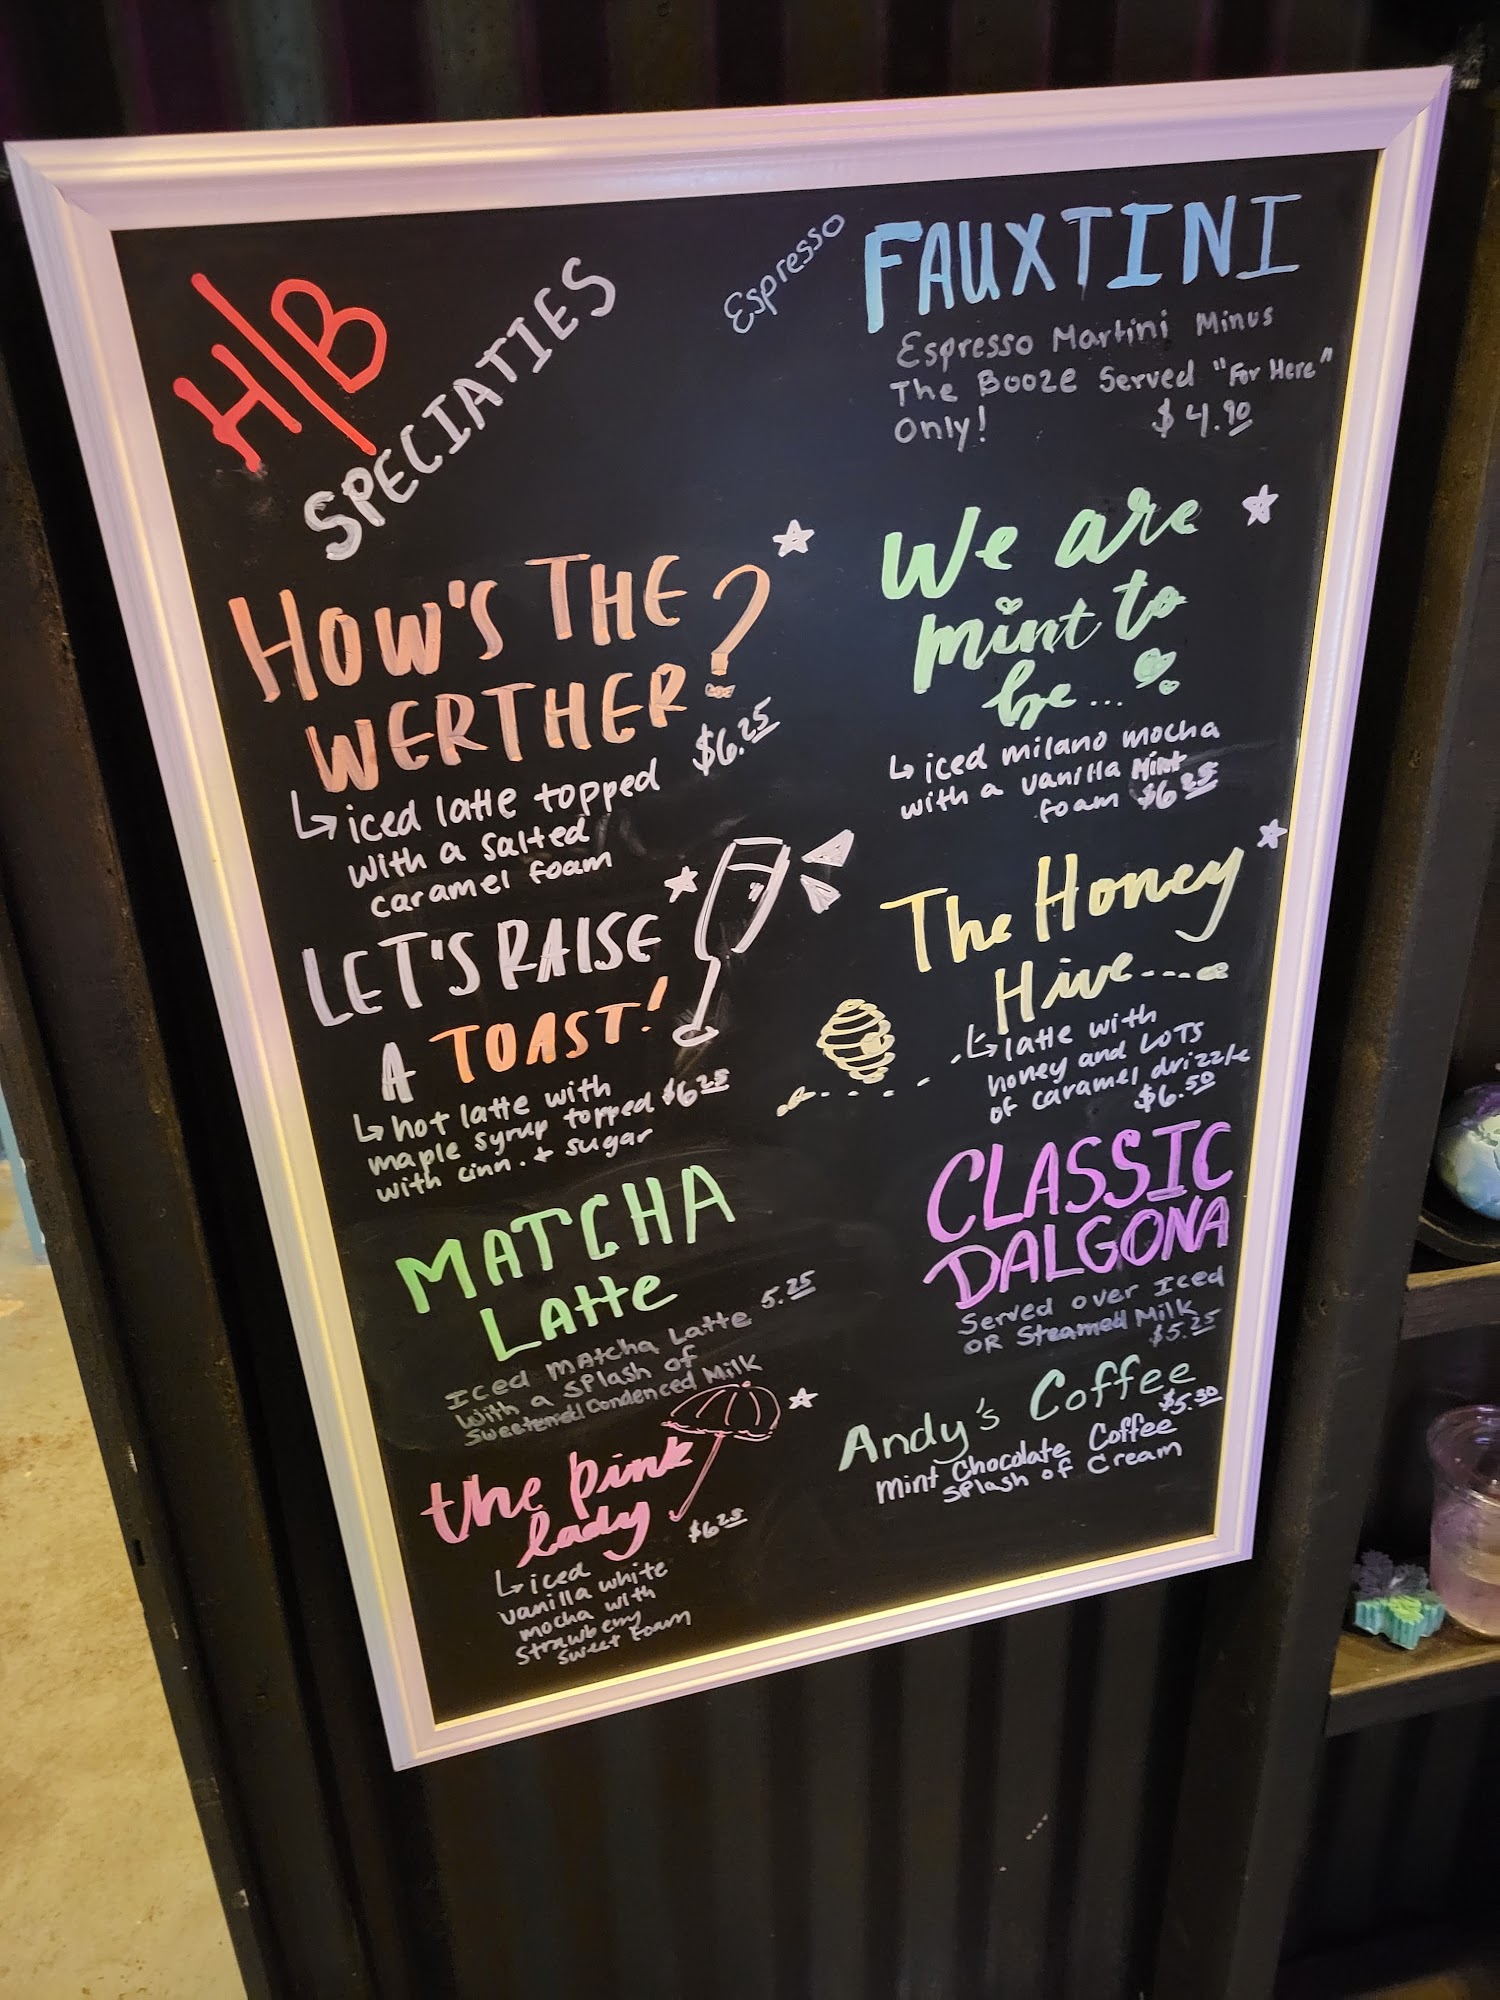 H/B
SPECIATIES
HOW'S THE
WERTHER?
$6.25
↳ iced latte topped
with a salted
caramel foam
LET'S RAISE
A TOAST!
↳ hot latte with
maple syrup topped $6.25
with cinn. + sugar
MATCHA
LATTE
5.25
Iced Matcha Latte
With a Splash of
Sweetened Condensed Milk
the pink
lady
$6.25
↳ iced
vanilla white
mocha with
strawberry
sweet foam
Espresso
FAUXTINI
Espresso Martini Minus
The Booze Served "For Here"
Only! $4.90
We are
mint to
be...
↳ iced milano mocha
with a vanilla mint
foam $6
The Honey
Hive
↳ latte with
honey and LOTS
of caramel drizzle
$6.50
CLASSIC
DALGONA
Served over Iced
OR Steamed Milk
$5.25
Andy's Coffee
$5.50
Mint Chocolate Coffee
Splash of Cream